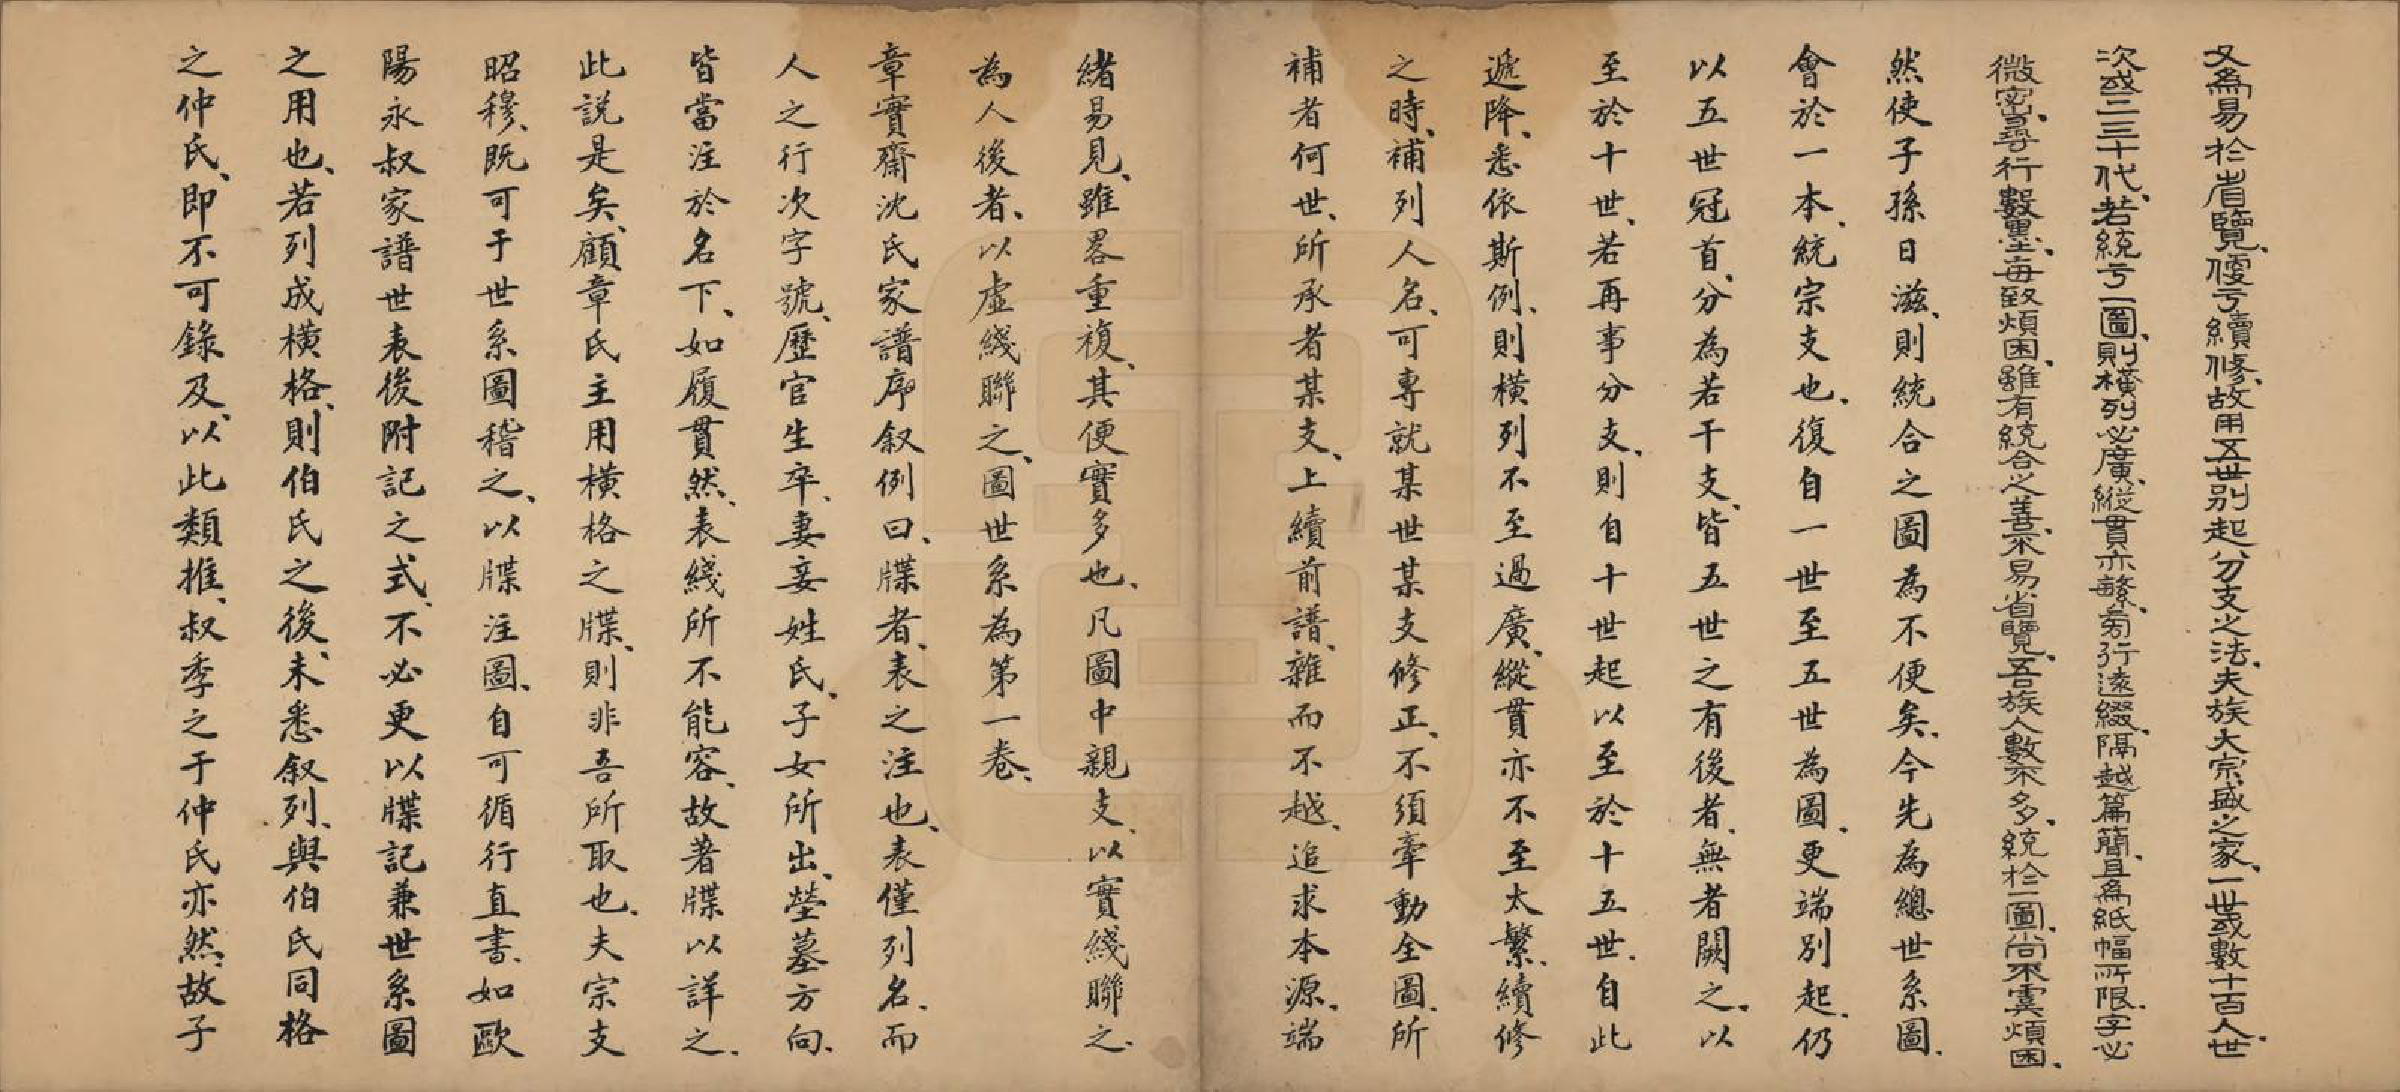 又為易於省覽、便于續修、故用五世別起分支之法、夫族大宗盛之家、一世或數十百人、世
次或二三十代、若統于一圖、則橫列必廣、縱貫亦繁、旁行遠綴、隔越篇簡、且為紙幅所限、字必
微密、尋行數墨、每致煩困、雖有統合之善、不易省覽、吾族人數不多、統於一圖、尚不虞煩困、
然使子孫日滋、則統合之圖為不便矣、今先為總世系圖、
會於一本、統宗支也、復自一世至五世為圖、更端別起、仍
以五世冠首、分為若干支、皆五世之有後者、無者闕之、以
至於十世、若再事分支、則自十世起以至於十五世、自此
遞降、悉依斯例、則橫列不至過廣、縱貫亦不至太繁、續修
之時、補列人名、可專就某世某支修正、不須牽動全圖、所
補者何世、所承者某支、上續前譜、雜而不越、追求本源、端
緒易見、雖畧重複、其便實多也、凡圖中親支、以實綫聯之、
為人後者、以虛綫聯之、圖世系為第一卷、
章實齋沈氏家譜序叙例曰、牒者、表之注也、表僅列名、而
人之行次字號、歷官生卒、妻妾姓氏、子女所出、塋墓方向、
皆當注於名下、如履貫然、表綫所不能容、故著牒以詳之、
此説是矣、顧章氏主用橫格之牒、則非吾所取也、夫宗支
昭穆、既可于世系圖稽之、以牒注圖、自可循行直書、如歐
陽永叔家譜世表後附記之式、不必更以牒記兼世系圖
之用也、若列成橫格、則伯氏之後、未悉叙列、與伯氏同格
之仲氏、即不可錄及、以此類推、叔季之于仲氏亦然、故子